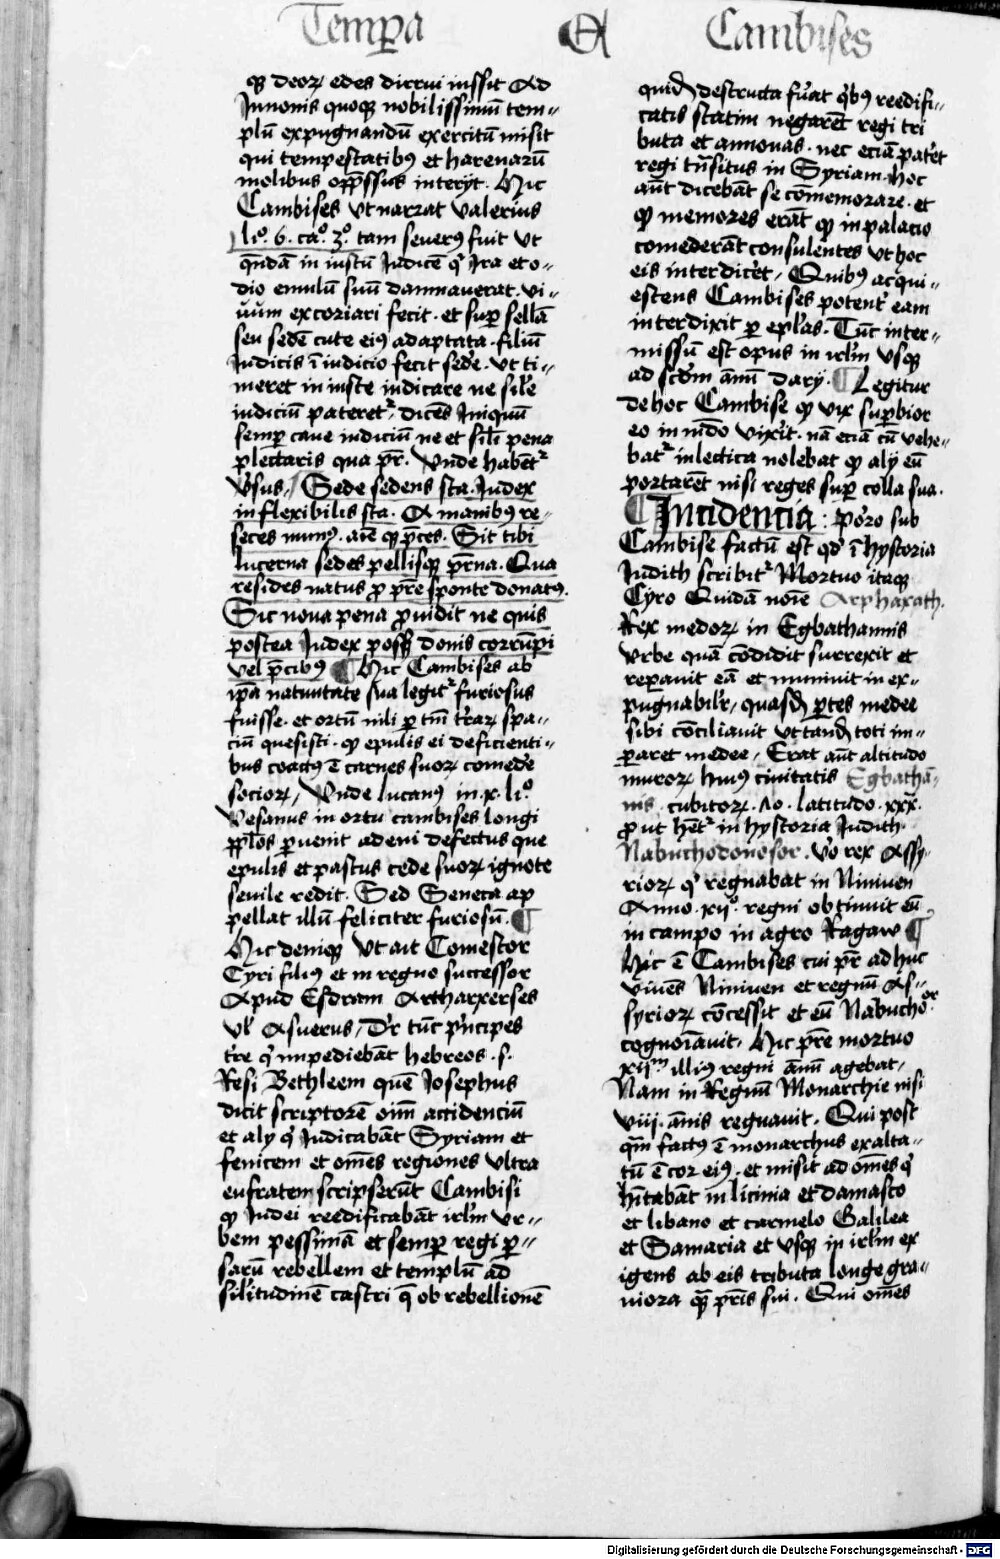 Tempora A Cambises
qꝫ deoꝝ edes dirrui iussit Ad
Junonis quoqꝫ nobilissimū tem-
plū expugnandū exercitū misit
qui tempestatibꝰ et harenarū
molibus opp̄ssus interijt. Hic
Cambises vt narrat valerius
li° 6. ca° 3° tam seuerꝰ fuit vt
qn̄dā in iustū Judicē q' Jra et o-
dio emulū suū damnauerat. vi-
uūm excoriari fecit. et suꝑ sellā
seu sedē cute eiꝰ adaptata. filiū
Judicis ī iudicio fecit sed'e. vt ti-
meret in iuste iudicare ne sil'e
iudiciū pateret~ dicēs Jniquū
semꝑ caue iudiciū ne et sil'i pena
plectaris qua pr̄. vnde habēt~
v'sus. Sede sedens ista. Judex
inflexibilis sta. A manibꝰ re-
seces munꝰ. aure qꝫ p̄ces. Sit tibi
lucerna sedes pellisqꝫ pr̄na. Qua
resides natus ꝓ pr̄e sponte donatꝰ.
Sic noua pena ꝓuidit ne quis
postea Judex poss̄ donis corrūpi
vel p̄cibꝰ ¶ Hic Cambises ab
ip̄a natiuitate sua legit~ furiosus
fuisse. et ortū nili ꝑ tm̄ t'raꝝ spa-
ciū quesisti. qꝫ epulis ei deficienti-
bus coactꝰ ē carnes suoꝝ comed'e
socioꝝ / vnde lucanꝰ in .x. li°
Vesanus in ortu cambises longi
ppl'os ꝑuenit ad eui defectus que
epulis et pastus cede suoꝝ ignote
senile redit. Sed Seneca ap
pellat illū feliciter furiosū. ¶
Hic deniqꝫ vt ait Comestor
Cyri filiꝰ et in regno successor
Apud Esdram Artharxerses
vl' Asuerus / Dr̄ tūc p'ncipes
t're q' impediebāt hebreos .s.
Resi Bethleem quē Josephus
dicit scriptorē oīm accidenciū
et aly q' Judicabāt Syriam et
fenicem et om̄es regiones vltra
eufratem scripserūt Cambisi
qꝫ Judei reedificabāt irl'm vr-
bem pessimā et semꝑ regi ꝑ-
sarū rebellem et templū ad
sil'itudinē castri q̄ ob rebellionē
quid'ē destructa fu'at q'bꝰ reedifi-
catis statim negarēt regi tri
buta et annonas. nec eciā pat'et
regi tn̄situs in Syriam. hoc
aūt dicebāt se cōmemorare. et
qꝫ memores erāt qꝫ in palacio
comederāt consulentes vt hoc
eis interdic'et / Quibꝰ acqui-
estens Cambises potent' eam
interdixit ꝑ ep'las. Tūc inter-
missū est opus in irl'm vsqꝫ
ad scd'm ānū Darij. ¶ Legitur
de hoc Cambise qꝫ vix suꝑbior
eo in mūdo vixit. nā eciā cū vehe-
bat~ in lectica nolebat qꝫ aly eū
portarēt nisi reges suꝑ colla sua.
¶ Incidencia : porro sub
Cambise factū est qd' ī hystoria
Judith scribit~ Mortuo itaqꝫ
Cyro Quidā noīe Arphaxath.
Rex medoꝝ in Egbathannis
vrbe quā cōdidit surrexit et
reparauit eā et muniuit in ex-
pugnabil'r, quasdā ꝑtes medee
sibi cōciliauit vt tand'ē toti im-
paret medee / Erat aūt altitudo
muroꝝ huiꝰ ciuitatis Egbathā-
nis. cubitoꝝ .70. latitudo .xxx.
ꝓ ut hēt~ in hystoria Judith.
Nabuchodonosor. v'o rex Assy-
rioꝝ q' regnabat in Niniuen
Anno .xij°. regni obtinuit eū
in campo in agro Ragaw ¶
Hic ē Cambises cui pr̄ adhuc
viuēs Niniuen et regnū As-
syrioꝝ cōcessit et eū Nabucho°ʳ
cognoīauit. Hic pr̄e mortuo
xijᵐ illiꝰ regni ānū agebat,
Nam in Regnū Monarchie nisi
viij. ānis regnauit. Qui post
qm̄ factꝰ ē monarchus exalta-
tū ē cor eiꝰ. et misit ad om̄es q'
hītabāt in licinia et damasco
et libano et carmelo Galilea
et Samaria et vsqꝫ in irl'm ex
igens ab eis tributa longe gra-
uiora qꝫ̄ pr̄is sui. Qui om̄es
Digitalisierung gefördert durch die Deutsche Forschungsgemeinschaft - DFG